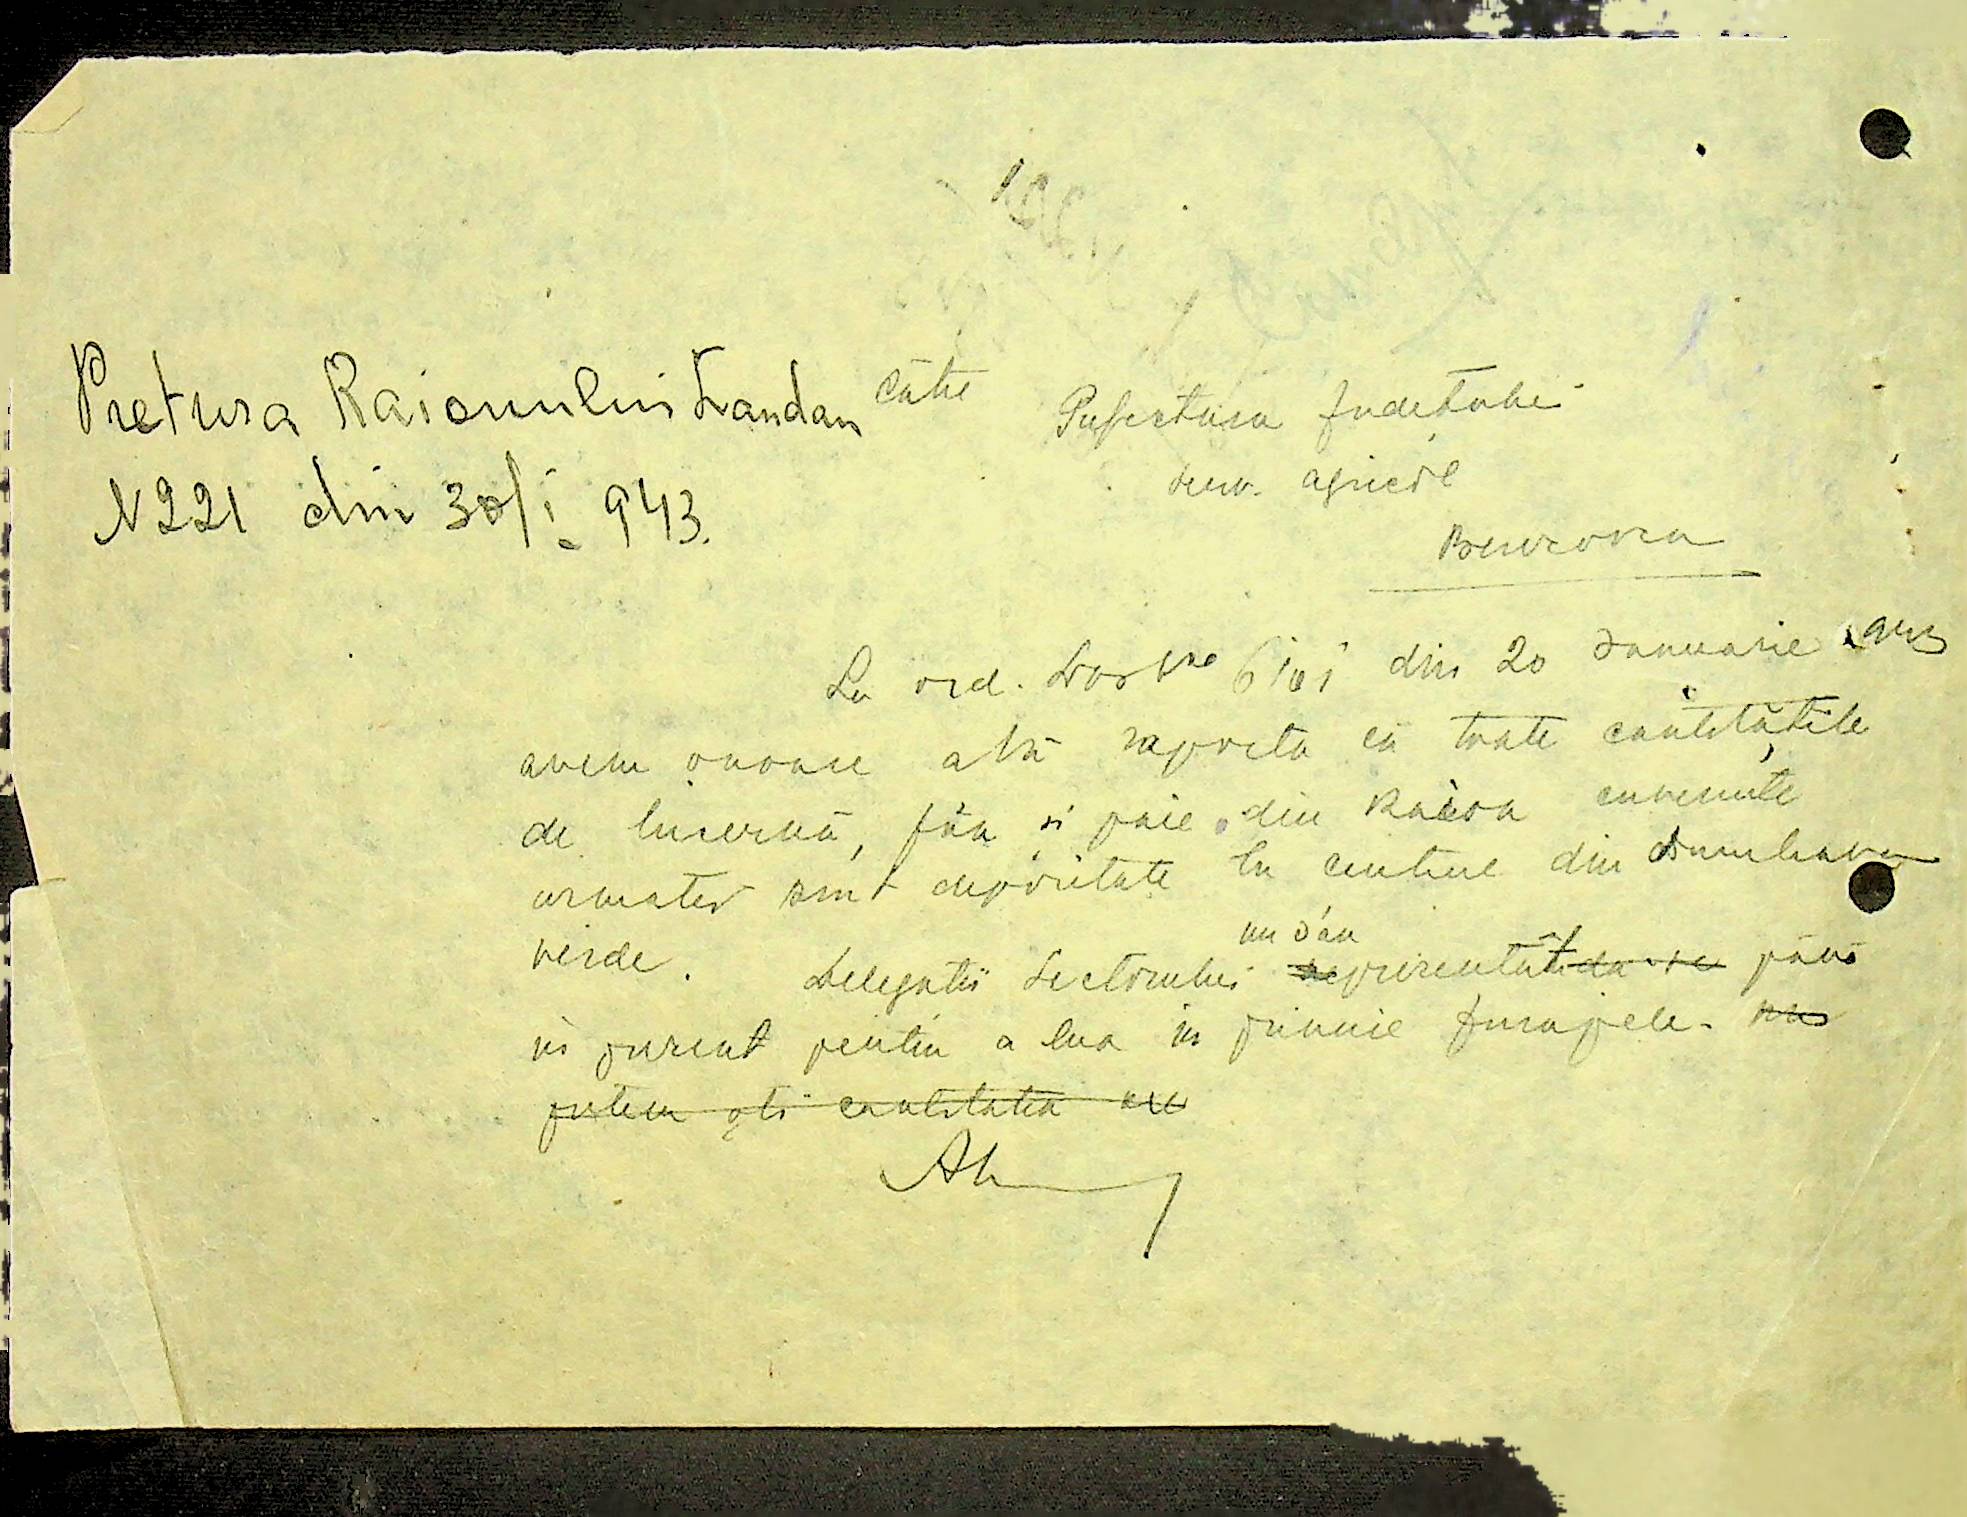 Pretura Raionului Landau
N 221 din 30/I. 943.
Către
Prefectura Judetului
serv. agricol
Berezovca
La ord. Dvs № 6161 din 20 Januarie
avem onoare a Vă raporta că toate cantitățile
de lucernă, fân și paie din Raion cuvenite
armatei sunt depozitate în centrul din Dumbrava
verde.
Delegatii Sectorului nu s'au prezentat până
in prezent pentru a lua in primire furajele. nu
putem ști cantitatea